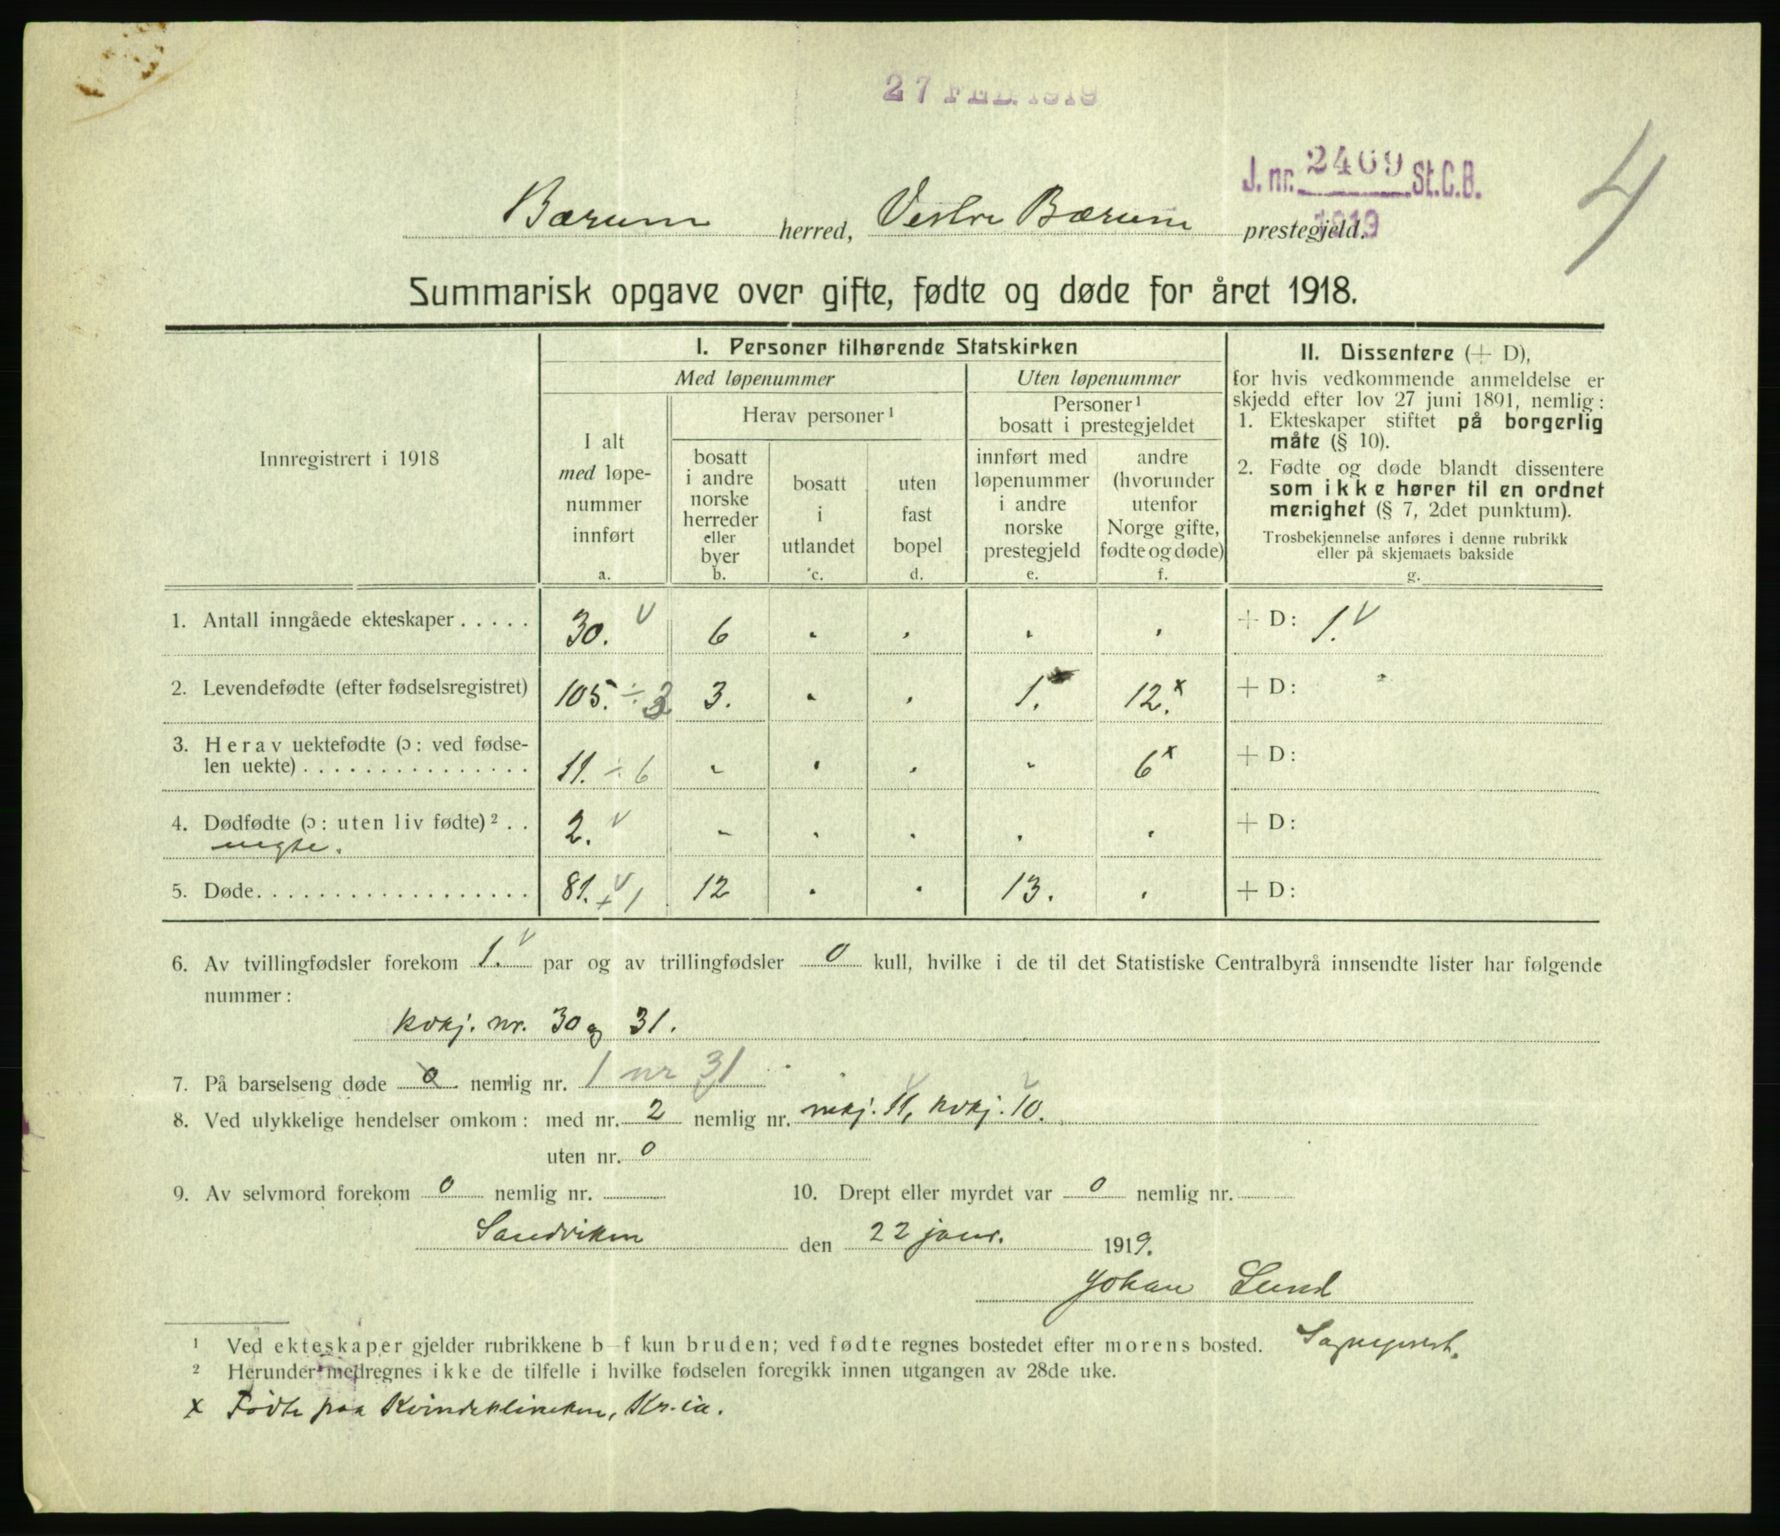 27 FEB. 1919
J. nr. 2469 St.C.B.
1919
4
Bærum herred, Vestre Bærum prestegjeld.
Summarisk opgave over gifte, fødte og døde for året 1918.
Innregistrert i 1918
I. Personer tilhørende Statskirken
Med løpenummer
Uten løpenummer
I alt
med løpe-
nummer
innført
a.
Herav personer ¹
bosatt
i andre
norske
herreder
eller
byer
b.
bosatt
i
utlandet
c.
uten
fast
bopel
d.
Personer ¹
bosatt i prestegjeldet
innført med
løpenummer
i andre
norske
prestegjeld
e.
andre
(hvorunder
utenfor
Norge gifte,
fødte og døde)
f.
II. Dissentere (+ D),
for hvis vedkommende anmeldelse er
skjedd efter lov 27 juni 1891, nemlig:
1. Ekteskaper stiftet på borgerlig
måte (§ 10).
2. Fødte og døde blandt dissentere
som ikke hører til en ordnet
menighet (§ 7, 2det punktum).
Trosbekjennelse anføres i denne rubrikk
eller på skjemaets bakside
g.
1. Antall inngåede ekteskaper . . . . . 30. v 6 . . . . + D: 1. v
2. Levendefødte (efter fødselsregistret) 105. ÷ 3 3. . . 1. x 12. x + D:
3. Herav uektefødte (ɔ: ved fødse-
len uekte) . . . . . . . . . . . . . . . 11. ÷ 6 - . . - 6 x + D:
4. Dødfødte (ɔ: uten liv fødte) ² . . 2. v - . . . . + D:
5. Døde. . . . . . . . . . . . . . . . . . 81. v + 1 12 . . 13. . + D:
6. Av tvillingfødsler forekom 1. v par og av trillingfødsler 0 kull, hvilke i de til det Statistiske Centralbyrå innsendte lister har følgende
nummer:
kvkj. nr. 30 og 31.
7. På barselseng døde 0 nemlig nr. 1 nr 31
8. Ved ulykkelige hendelser omkom: med nr. 2 nemlig nr. mkj. 11, kvkj. 10.
uten nr. 0
9. Av selvmord forekom 0 nemlig nr.
10. Drept eller myrdet var 0 nemlig nr.
Sandviken den 22 janr. 1919.
Johan Lund
Sogneprest.
¹ Ved ekteskaper gjelder rubrikkene b–f kun bruden; ved fødte regnes bostedet efter morens bosted.
² Herunder medregnes ikke de tilfelle i hvilke fødselen foregikk innen utgangen av 28de uke.
x Fødte paa Kvindeklinikken, Kr.ia.